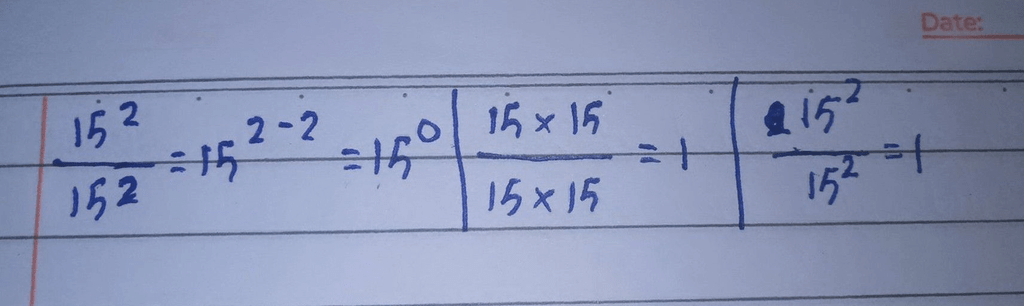 Date:
15²/15² = 15²⁻² = 15⁰ | 15 × 15 / 15 × 15 = 1 | 15²/15² = 1